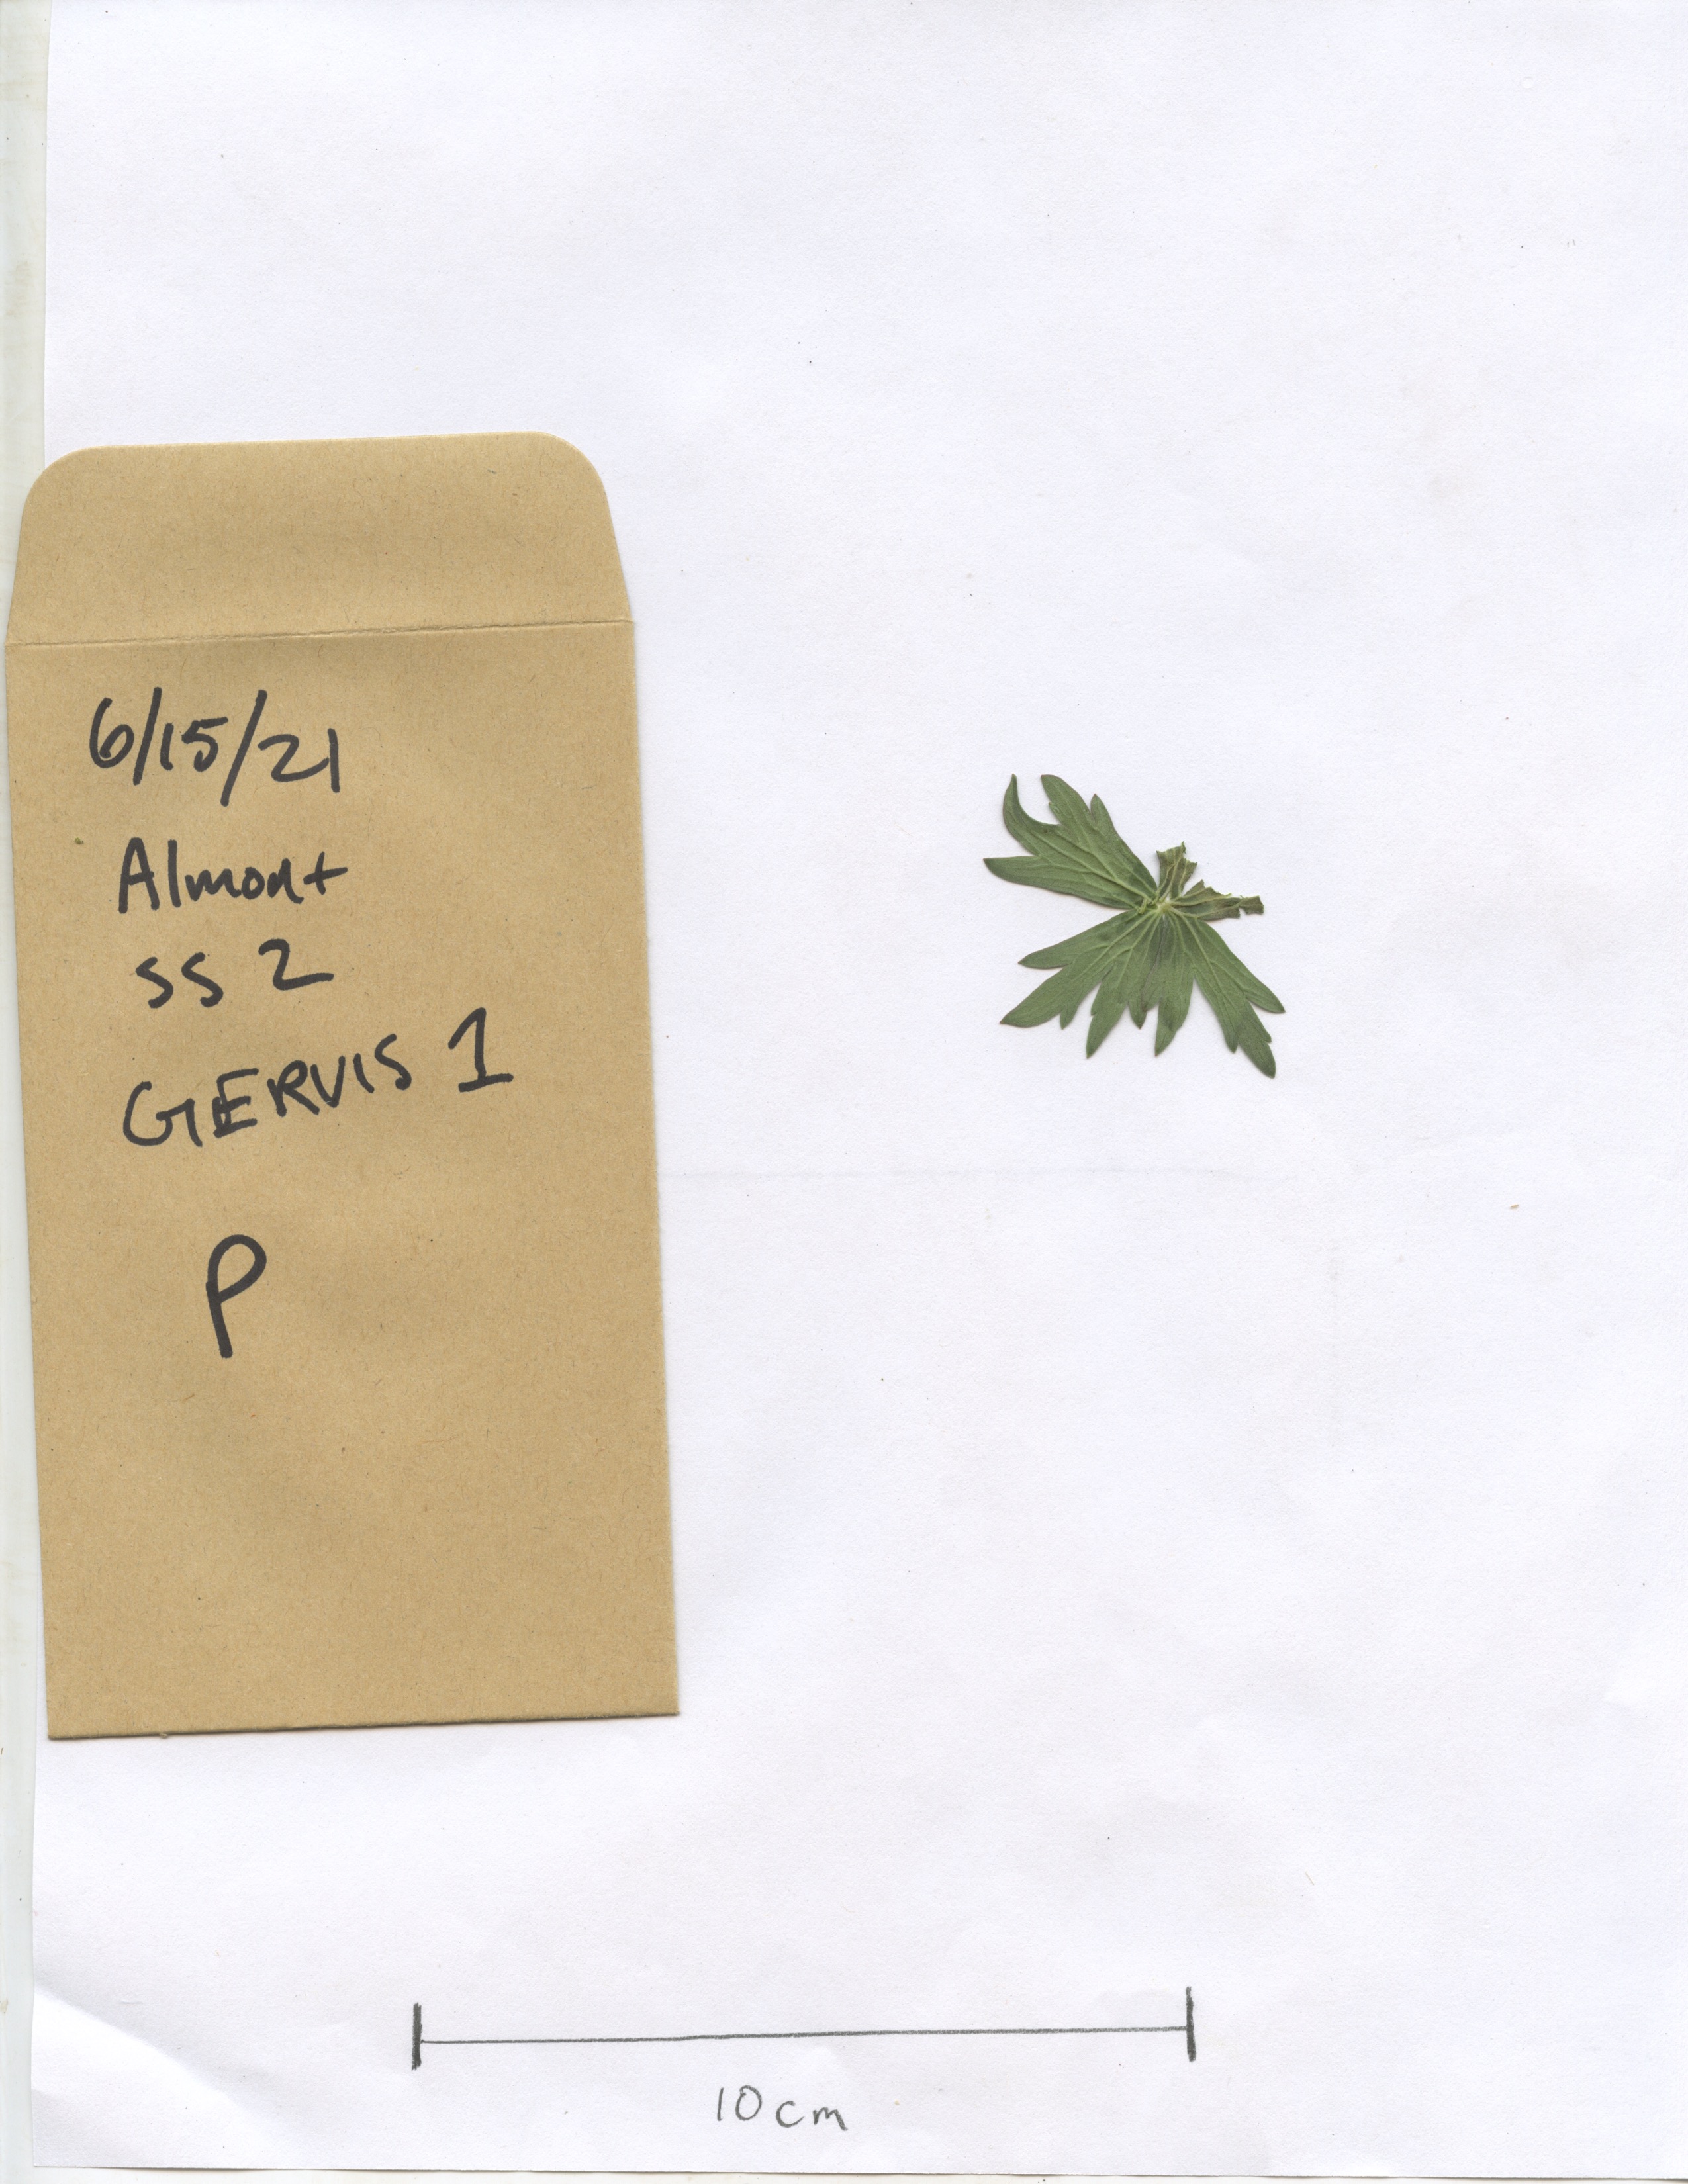 6/15/21
Almont
SS 2
GERVIS 1
P
10cm